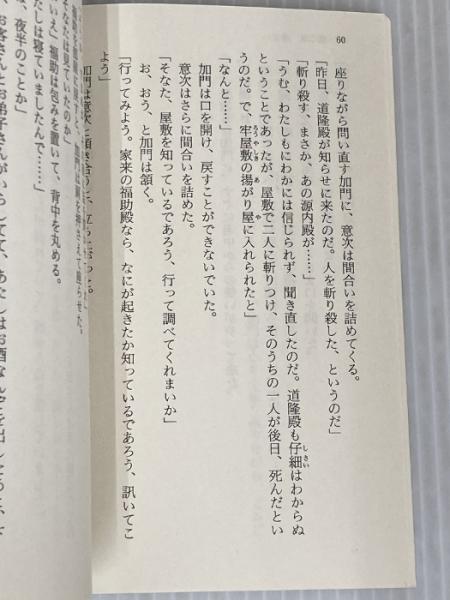 60
座りながら問い直す加門に、意次は間合いを詰めてくる。
「昨日、道隆殿が知らせに来たのだ。人を斬り殺した、というのだ」
「斬り殺す、まさか、あの源内殿が……」
「うむ、わたしもにわかには信じられず、聞き直したのだ。道隆殿も仔細はわからぬ
しさい
ということであったが、屋敷で二人に斬りつけ、そのうちの一人が後日、死んだとい
うのだ。で、牢屋敷の揚がり屋に入れられたと」
ろうやしき あ や
「なんと……」
加門は口を開け、戻すことができないでいた。
意次はさらに間合いを詰めた。
「そなた、屋敷を知っているであろう、行って調べてくれまいか」
お、おう、と加門は頷く。
「行ってみよう。家来の福助殿なら、なにが起きたか知っているであろう、訊いてこ
よう」
加門は意次と頷き合
そなたは見ていたのか」
いえ」福助は包みを置いて、背中を丸める。
たしは寝ていましたんで……」
、夜半のことか」